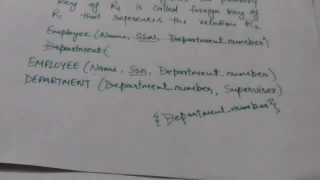 key of R1 is called foreign key of
R, that represents the relation R12.
Employee (Name, SSn, Department.number)
Department (
EMPLOYEE (Name, Ssn, Department number)
DEPARTMENT (Department.number, Supervisor)
{Department.number}